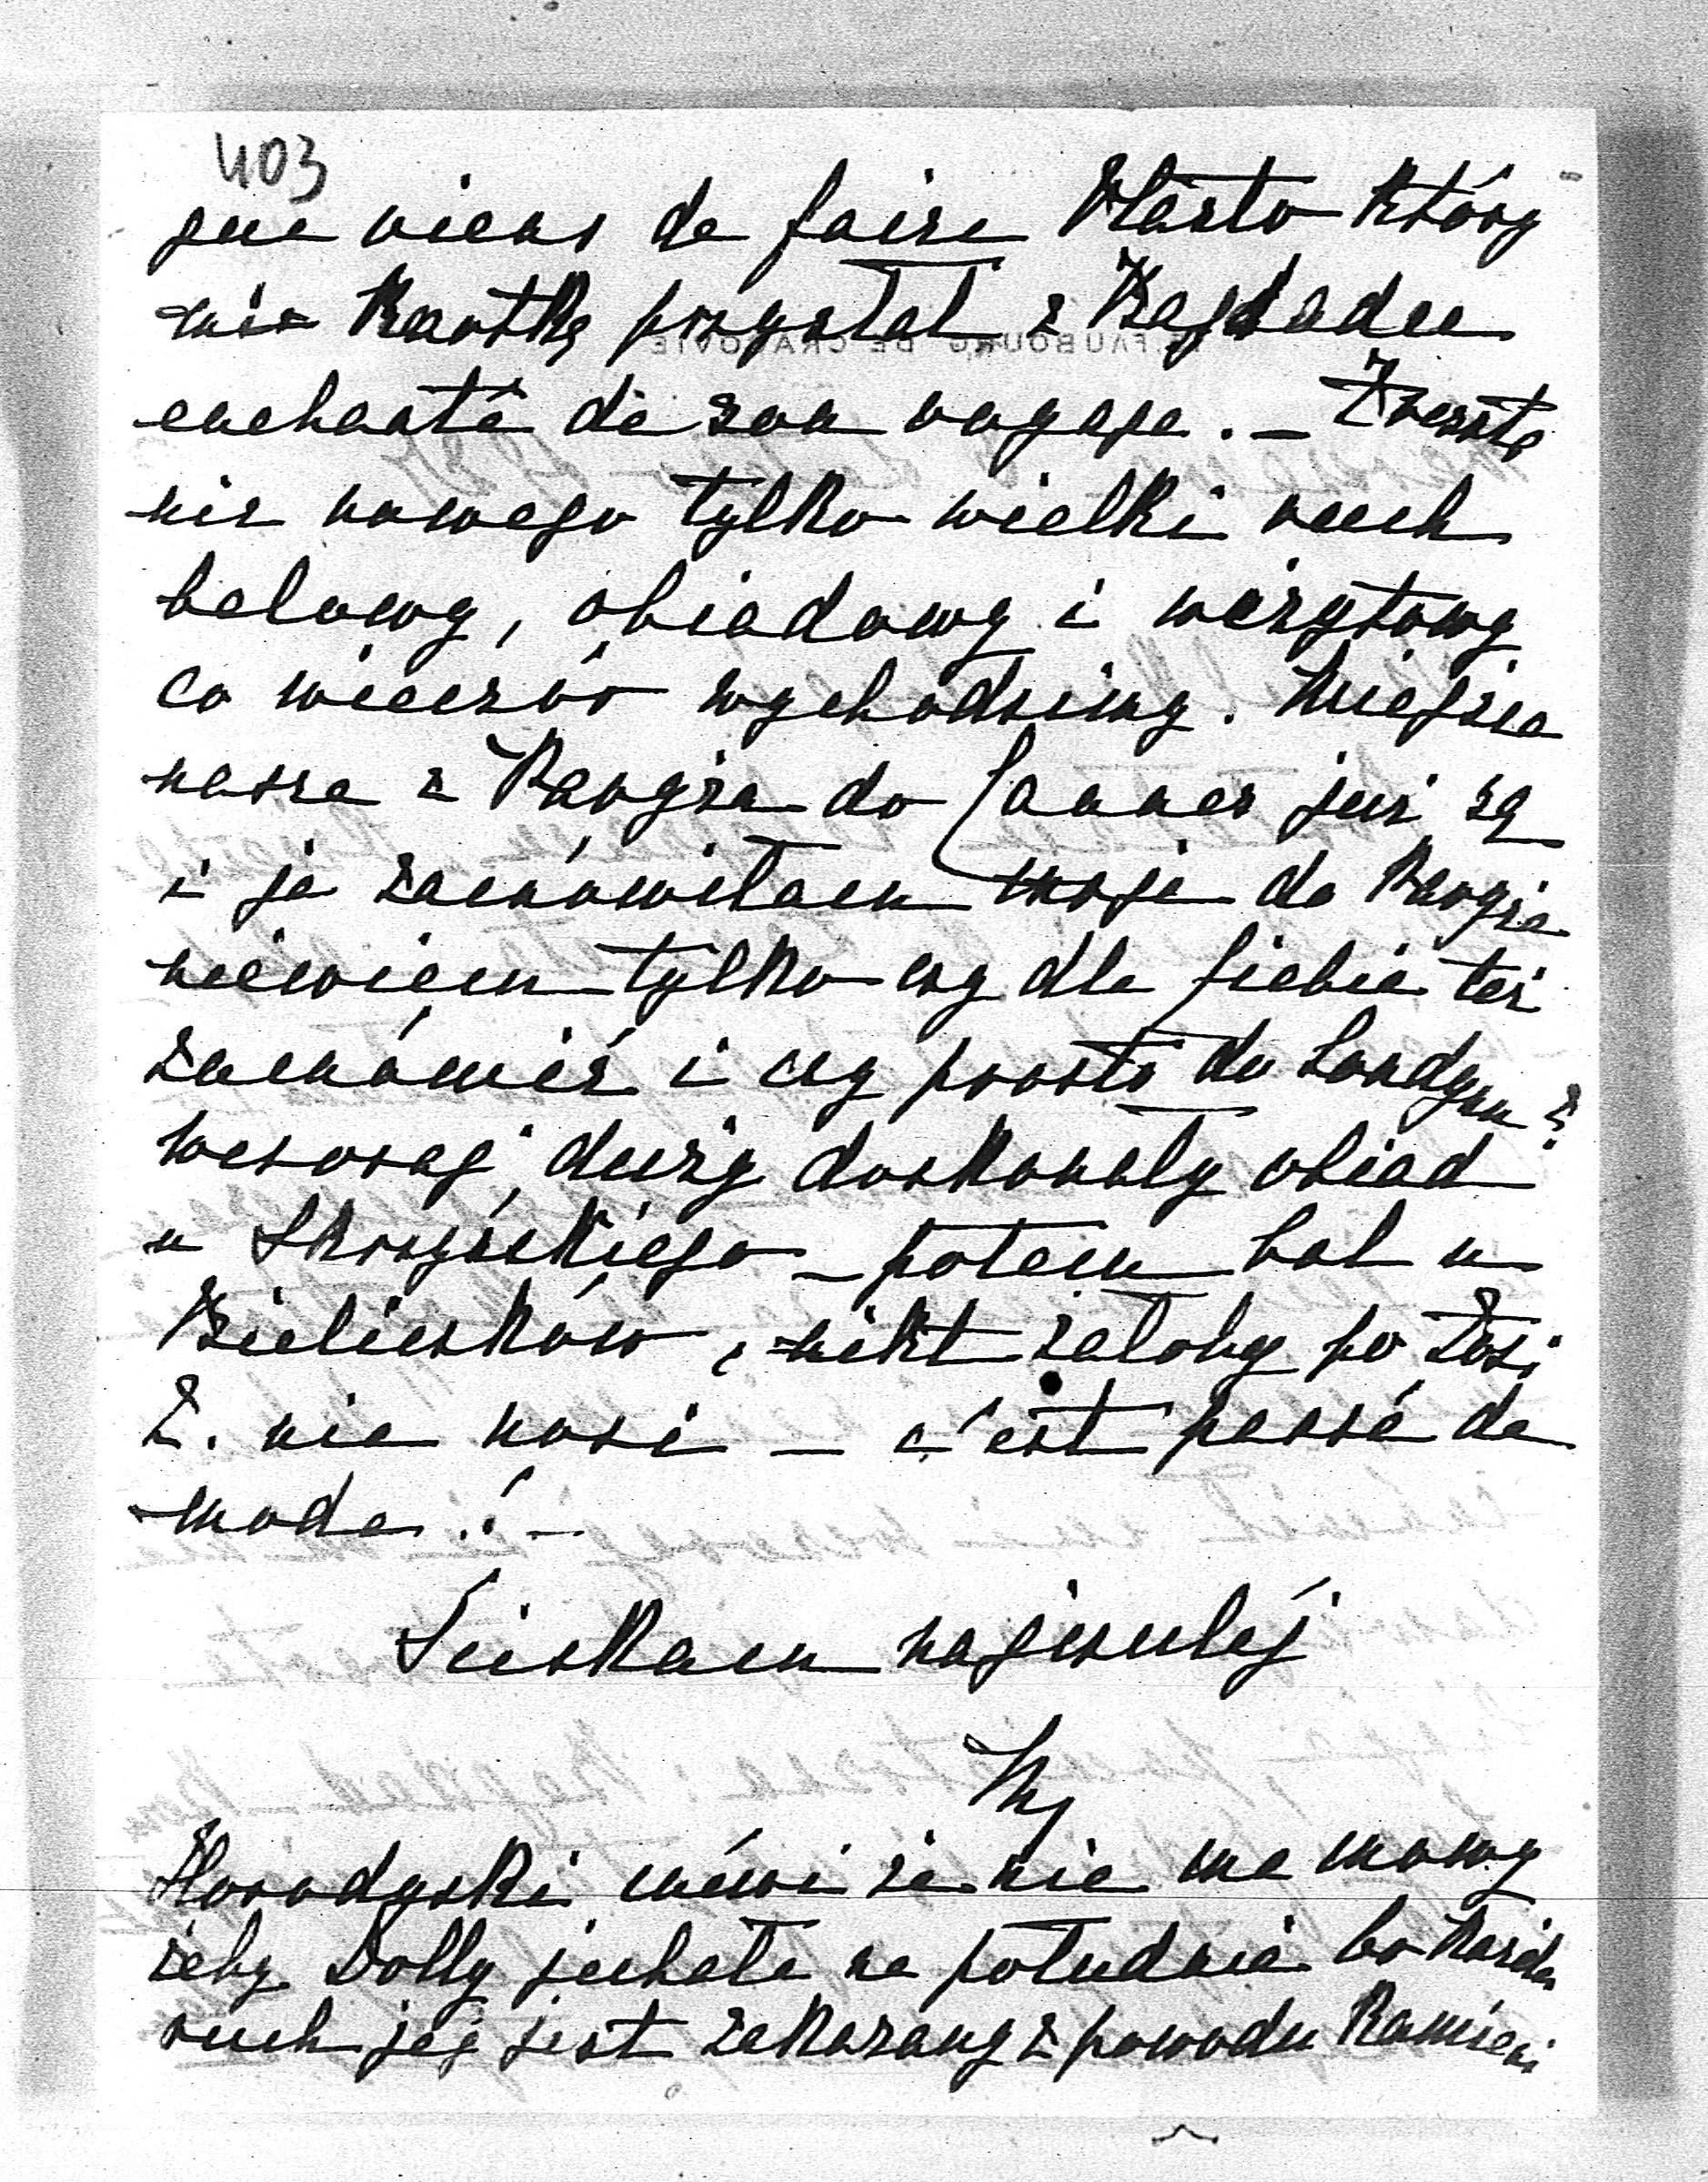 403
que viens de faire Vlasto który
mi kartkę przysłał z Bagdadu
enchanté de son voyage. — Zresztą
nic nowego tylko wielki ruch
balowy, obiadowy i wizytowy
co wieczór wychodzimy. Miejsca
nasze z Paryża do Cannes już są
i ja zamówiłam moje do Paryża
niewiem tylko czy dla siebie też
zamówić i czy prosto do Londynu?
wczoraj duży doskonały obiad
u Skrzyńskiego — potem bal u
Bielińsków, nikt żałoby po Zosi
Z. nie nosi — c'est passé de
mode! —
Ściskam najczulej
Horodyski mówi że nie ma mowy
żeby Dolly jechała na południe bo każdy
ruch jej jest zakazany z powodu kamieni